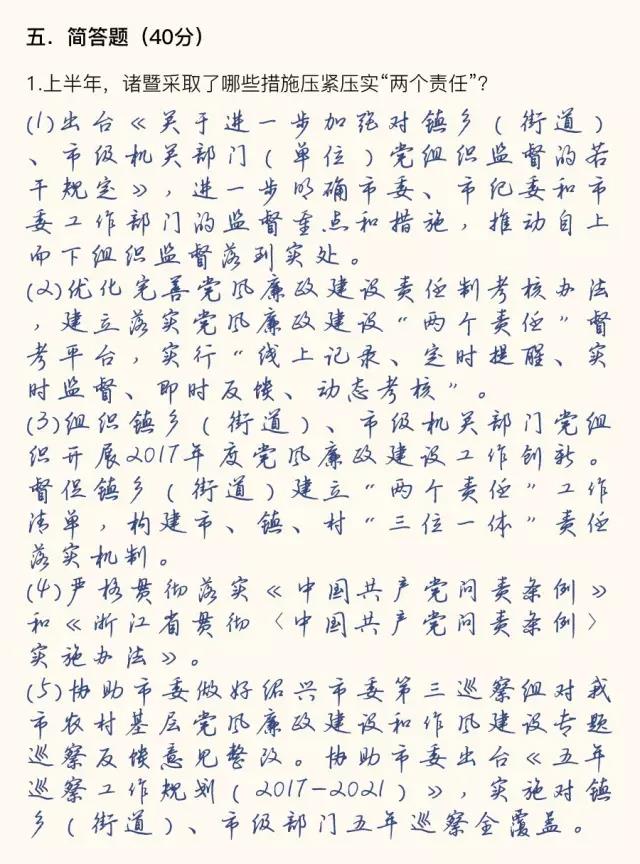 五．简答题（40分）
1.上半年，诸暨采取了哪些措施压紧压实“两个责任”？
(1)出台《关于进一步加强对镇乡（街道）
、市级机关部门（单位）党组织监督的若
干规定》，进一步明确市委、市纪委和市
委工作部门的监督重点和措施，推动自上
而下组织监督落到实处。
(2)优化完善党风廉政建设责任制考核办法
，建立落实党风廉政建设“两个责任”督
考平台，实行“线上记录、定时提醒、实
时监督、即时反馈、动态考核”。
(3)组织镇乡（街道）、市级机关部门党组
织开展2017年度党风廉政建设工作创新。
督促镇乡（街道）建立“两个责任”工作
清单，构建市、镇、村“三位一体”责任
落实机制。
(4)严格贯彻落实《中国共产党问责条例》
和《浙江省贯彻〈中国共产党问责条例〉
实施办法》。
(5)协助市委做好绍兴市委第三巡察组对我
市农村基层党风廉政建设和作风建设专题
巡察反馈意见整改。协助市委出台《五年
巡察工作规划（2017-2021）》，实施对镇
乡（街道）、市级部门五年巡察全覆盖。